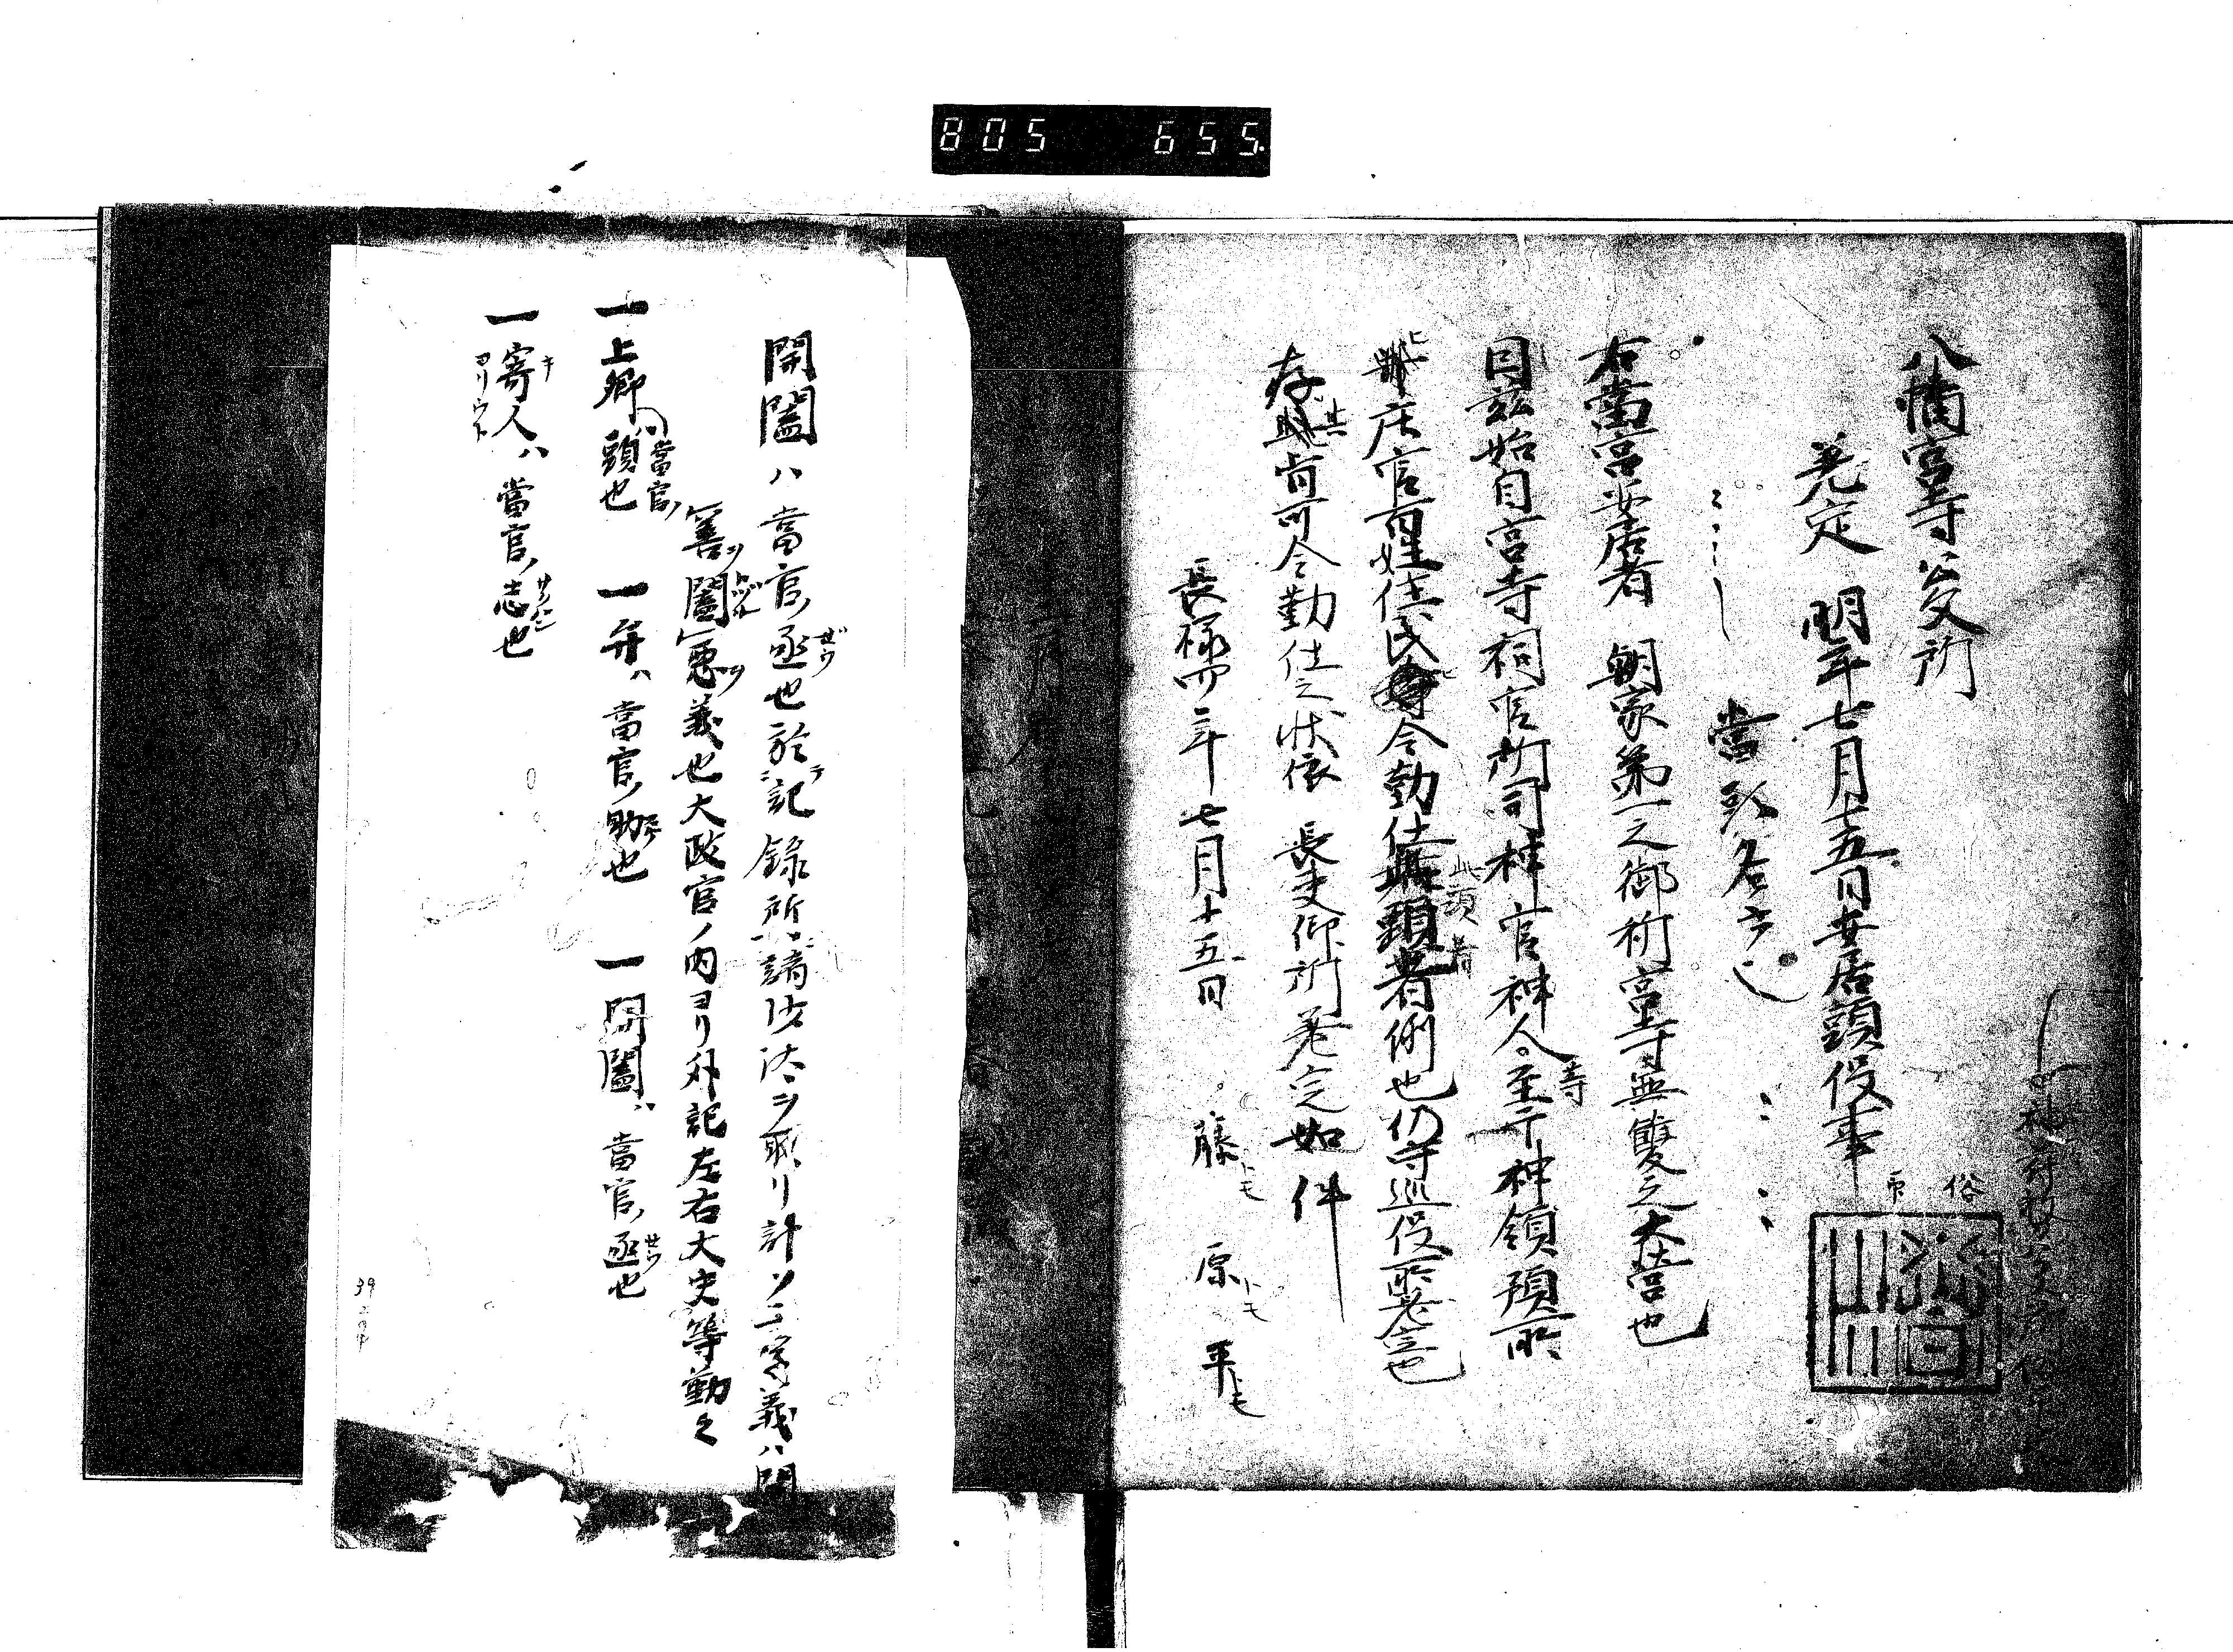 805 655.
八幡宮寺公文所
差定 明年七月十五日安居頭役事
當頭名字
右當宮安居者 朝家第一之御祈宮寺無雙之大營也
因茲始自宮寺祠官所司神官神人等至于神領預所
庄官百姓住民令勤仕此頭者例也仍守巡役所差定也
存其旨可令勤仕之状依 長吏仰所差定如件
長禄四年七月十五日 藤トモ 原トモ 平トモ
俗
開闔ハ當官ノ丞ゼウ也於テ記録所ニ諸沙汰ヲ取リ計ソ二字義ハ開
善ヲ闔悪ヲ義也大政官ノ内ヨリ外記左右大史等勤之
一上卿ハ當官ノ頭也 一弁ハ當官ノ助也 一開闔ハ當官ノ丞ゼウ也
一寄キ人ヨリウトハ當官ノ志サクハン也
39